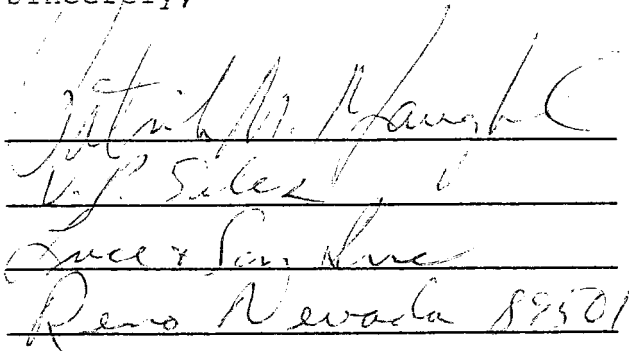 Sincerely,
Patrick M.
V.P. Sales
Luce & Son, Inc
Reno Nevada 89501